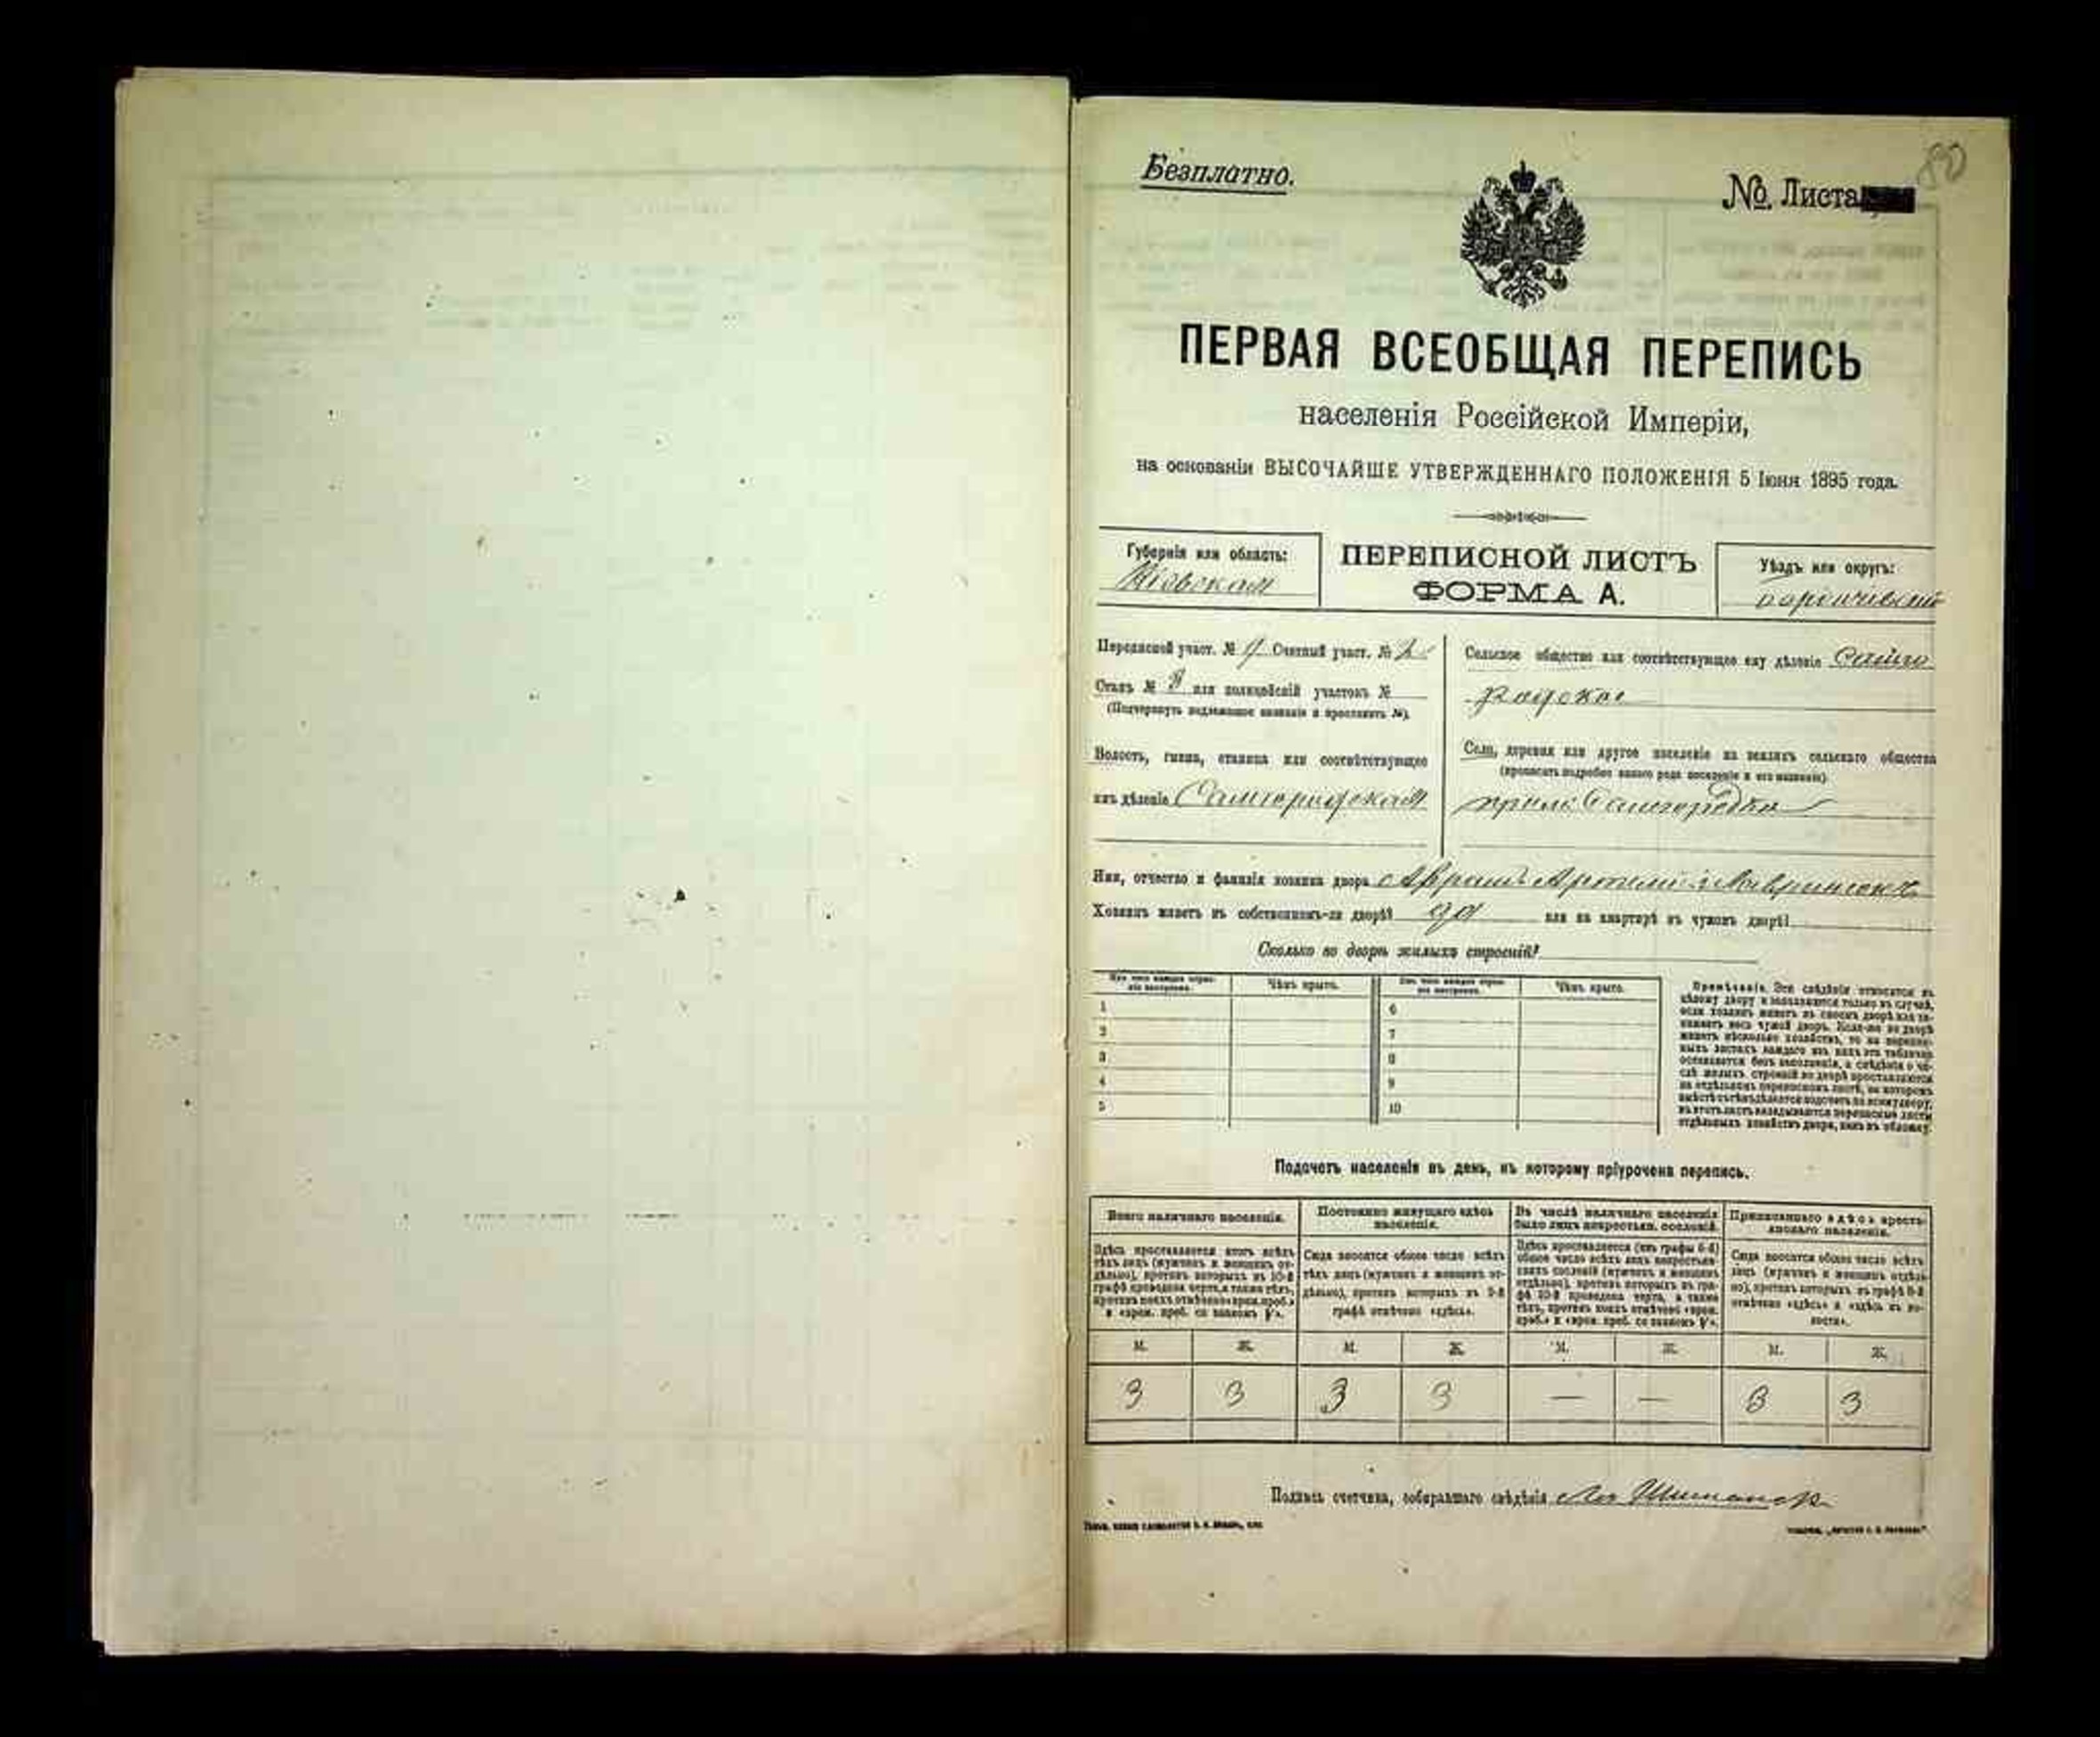 80
Безплатно.
№ Листа
ПЕРВАЯ ВСЕОБЩАЯ ПЕРЕПИСЬ
населенія Россійской Имперіи,
на основаніи ВЫСОЧАЙШЕ УТВЕРЖДЕННАГО ПОЛОЖЕНІЯ 5 Іюня 1895 года.
Губернія или область:
Кіевская
ПЕРЕПИСНОЙ ЛИСТЪ
ФОРМА А.
Уѣздъ или округъ:
Переписной участ. № Счетный участ. № 2
Станъ № или полицейскій участокъ №
(Подчеркнуть надлежащее названіе и проставить №).
Волость, гмина, станица или соотвѣтствующее
имъ дѣленіе Самгородская
Сельское общество или соотвѣтствующее ему дѣленіе Самго
родское
Село, деревня или другое поселеніе на земляхъ сельскаго общества
(прописать подробно какого рода поселеніе и его названіе)
Самгородка
Имя, отчество и фамилія хозяина двора
Хозяинъ живетъ въ собственномъ-ли дворѣ? да или на квартирѣ въ чужомъ дворѣ?
Сколько во дворѣ жилыхъ строеній?
Изъ чего каждое строеніе построено. Чѣмъ крыто. Изъ чего каждое строеніе построено. Чѣмъ крыто.
1 6
2 7
3 8
4 9
5 10
Примѣчаніе. Эти свѣдѣнія относятся къ
цѣлому двору и заполняются только въ случаѣ,
если хозяинъ живетъ въ своемъ дворѣ или за-
нимаетъ весь чужой дворъ. Если-же во дворѣ
живетъ нѣсколько хозяйствъ, то на перепис-
ныхъ листахъ каждаго изъ нихъ эта табличка
оставляется безъ заполненія, а свѣдѣнія о чи-
слѣ жилыхъ строеній во дворѣ проставляются
на отдѣльномъ переписномъ листѣ, на которомъ
вмѣстѣ съ тѣмъ дѣлается подсчетъ по всему двору;
въ этотъ листъ вкладываются переписные листы
отдѣльныхъ хозяйствъ двора, какъ въ обложку.
Подсчетъ населенія въ день, къ которому пріурочена перепись.
Всего наличнаго населенія.
Здѣсь проставляется итогъ всѣхъ
тѣхъ лицъ (мужчинъ и женщинъ от-
дѣльно), противъ которыхъ въ 10-й
графѣ проведена черта, а также тѣхъ,
противъ коихъ отмѣчено «врем. преб.»
и «врем. преб. со знакомъ V».
Постоянно живущаго здѣсь
населенія.
Сюда вносится общее число всѣхъ
тѣхъ лицъ (мужчинъ и женщинъ от-
дѣльно), противъ которыхъ въ 9-й
графѣ отмѣчено «здѣсь».
Въ числѣ наличнаго населенія
было лицъ некрестьян. сословій.
Здѣсь проставляется (изъ графы 6-й)
общее число всѣхъ лицъ некрестьян-
скихъ сословій (мужчинъ и женщинъ
отдѣльно), противъ которыхъ въ гра-
фѣ 10-й проведена черта, а также
тѣхъ, противъ коихъ отмѣчено «врем.
преб.» и «врем. преб. со знакомъ V».
Приписаннаго здѣсь кресть-
янскаго населенія.
Сюда вносится общее число всѣхъ
лицъ (мужчинъ и женщинъ отдѣль-
но), противъ которыхъ въ графѣ 8-й
отмѣчено «здѣсь» и «здѣсь въ во-
лости».
М. Ж. М. Ж. М. Ж. М. Ж.
3 3 3 3 — — 3 3
Подпись счетчика, собиравшаго свѣдѣнія